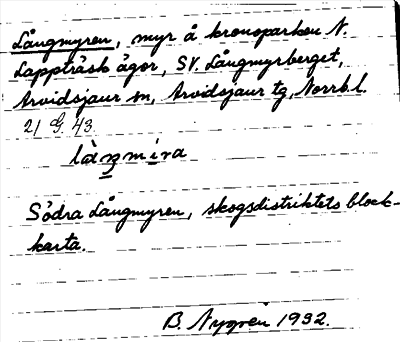 Långmyren, myr å kronoparken N.
Lappträsk ägor, SV. Långmyrberget,
Arvidsjaur sn, Arvidsjaur tg, Norrb.l.
21 G. 43
làŋmira
Södra Långmyren, skogsdistriktets block-
karta.
B. Nygren 1932.